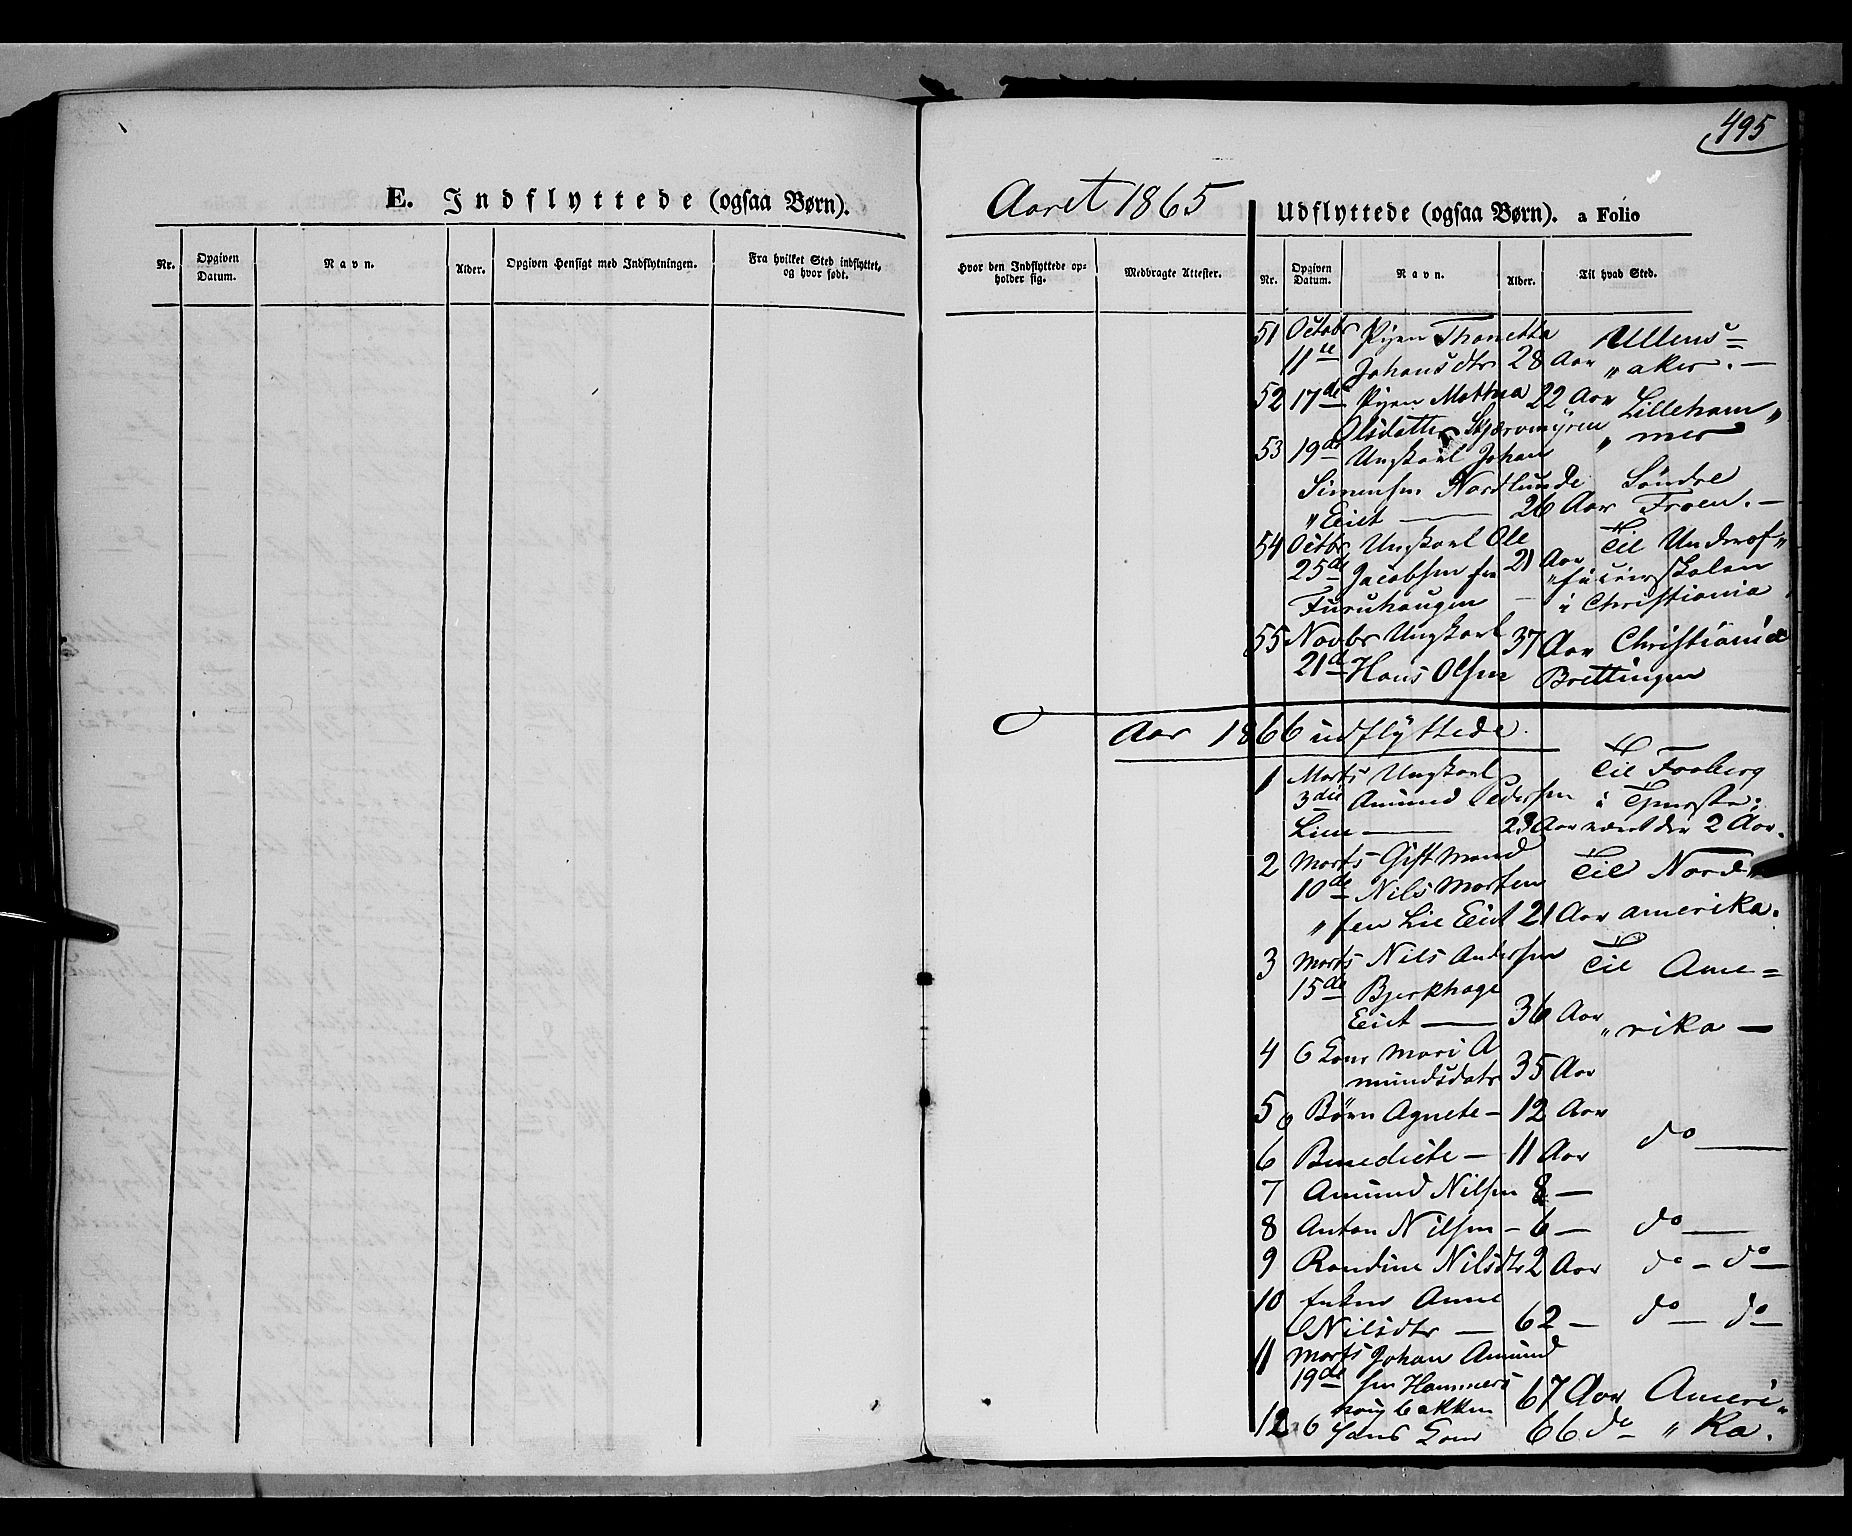 495
E. Indflyttede (ogsaa Børn).
Aaret 1865
Udflyttede (ogsaa Børn). a Folio
Nr. Opgiven Datum. Navn. Alder. Opgiven Hensigt med Indflytningen. Fra hvilket Sted indflyttet, og hvor født.
Hvor den Indflyttede opholder sig. Medbragte Attester. Nr. Opgiven Datum. Navn. Alder. Til hvad Sted.
51 Octobr Pigen Thonetta Ullens=
11te Johansdtr 28 Aar „aker. —
52 17de Pigen Mathea 22 Aar Lilleham„
Olsdatter Skjærvmyren „mer
53 19de Ungkarl Johan
Simensen Nordlunde Søndre
„Eiet — 26 Aar Froen. —
54 Octbr Ungkarl Ole Til Underof„
25de Jacobsen fra 21 Aar „ficiersskolen
Furuhaugen — i Christiania
55 Novbr Ungkarl 37 Aar Christiania
21de Hans Olsen Brettingen
Aar 1866 udflyttede.
1 Marts Ungkarl Til Faaberg
3die Amund Pedersen i Tjeneste;
Lien — 23 Aar været der 2 Aar.
2 Marts Gift Mand Til Nord„
10de Nils Morten
„sen Lie Eiet 21 Aar amerika.
3 Marts Nils Andersen Til Ame=
15de Bjerkhage
Eiet — 36 Aar „rika —
4 Kone Mari A
mundsdatr 35 Aar
5 Børn Agnete — 12 Aar
do —
6 Benedicte — 11 Aar
7 Amund Nilsen 8 —
8 Anton Nilsen — 6 — do —
9 Randine Nilsdtr 2 Aar do — do —
10 Enken Anne
Nilsdtr — 62 — do — do —
11 Marts Johan Amund
19de sen Hammers 67 Aar Ameri„
houg bakken
12 Hans Kone 66 do „ka.